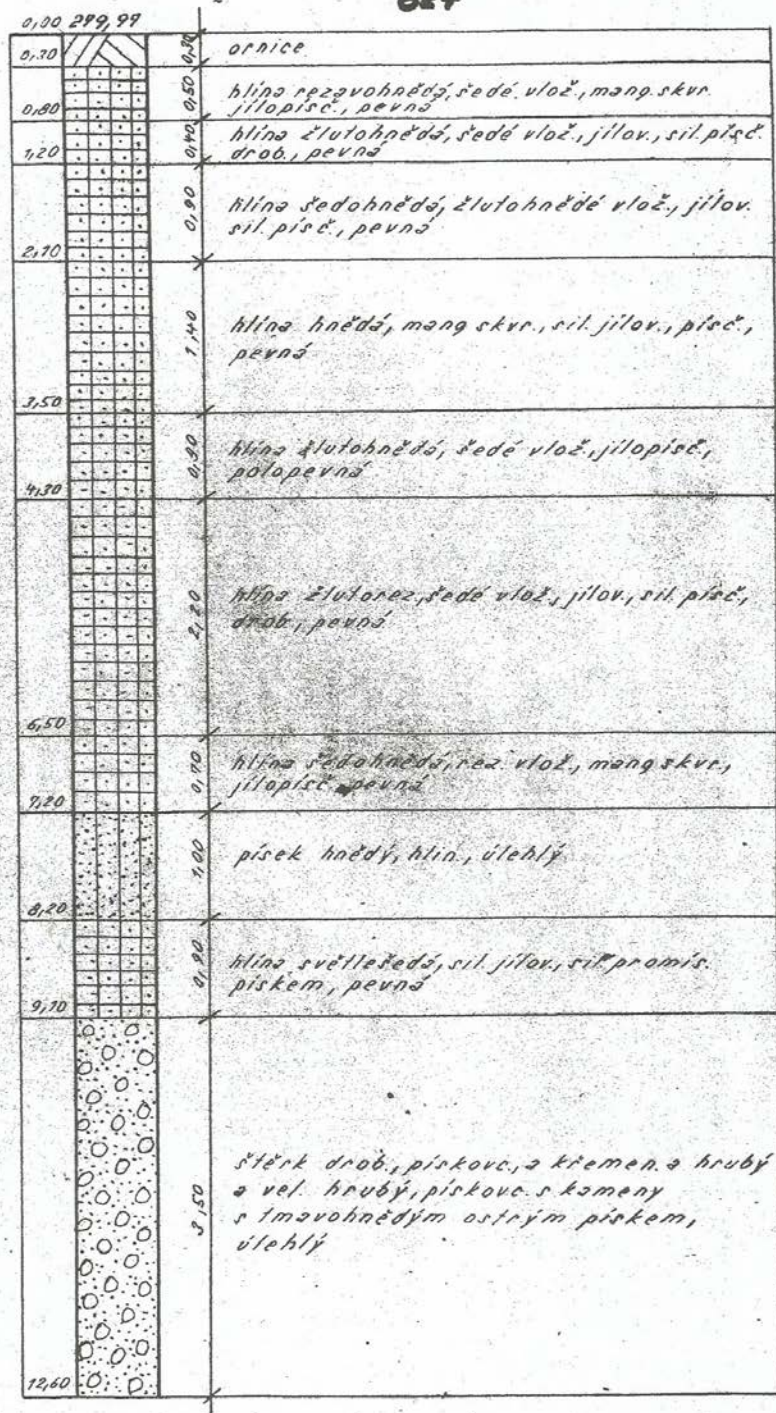 0,00 299,99
0,30 0,30 ornice
0,80 0,50 hlína rezavohnědá, šedé vlož., mang. skvr.
jílopísč., pevná
1,20 0,40 hlína žlutohnědá, šedé vlož., jílov., sil. písč.
drob., pevná
2,10 0,90 hlína šedohnědá, žlutohnědé vlož., jílov.
sil. písč., pevná
3,50 1,40 hlína hnědá, mang skvr., sil. jílov., písč.,
pevná
4,30 hlína žlutohnědá, šedé vlož., jílopísč.,
polopevná
6,50 2,20 hlína žlutorez, šedé vlož., jílov., sil. písč.,
drob., pevná
7,20 0,70 hlína šedohnědá, rez. vlož., mang skvr.,
jílopísč. pevná
8,20 1,00 písek hnědý, hlin., úlehlý
9,10 0,90 hlína světlešedá, sil. jílov., sil. promís.
pískem, pevná
12,60 3,50 štěrk drob., pískovc., a křemen. a hrubý
a vel. hrubý, pískovc. s kameny
s tmavohnědým ostrým pískem,
úlehlý